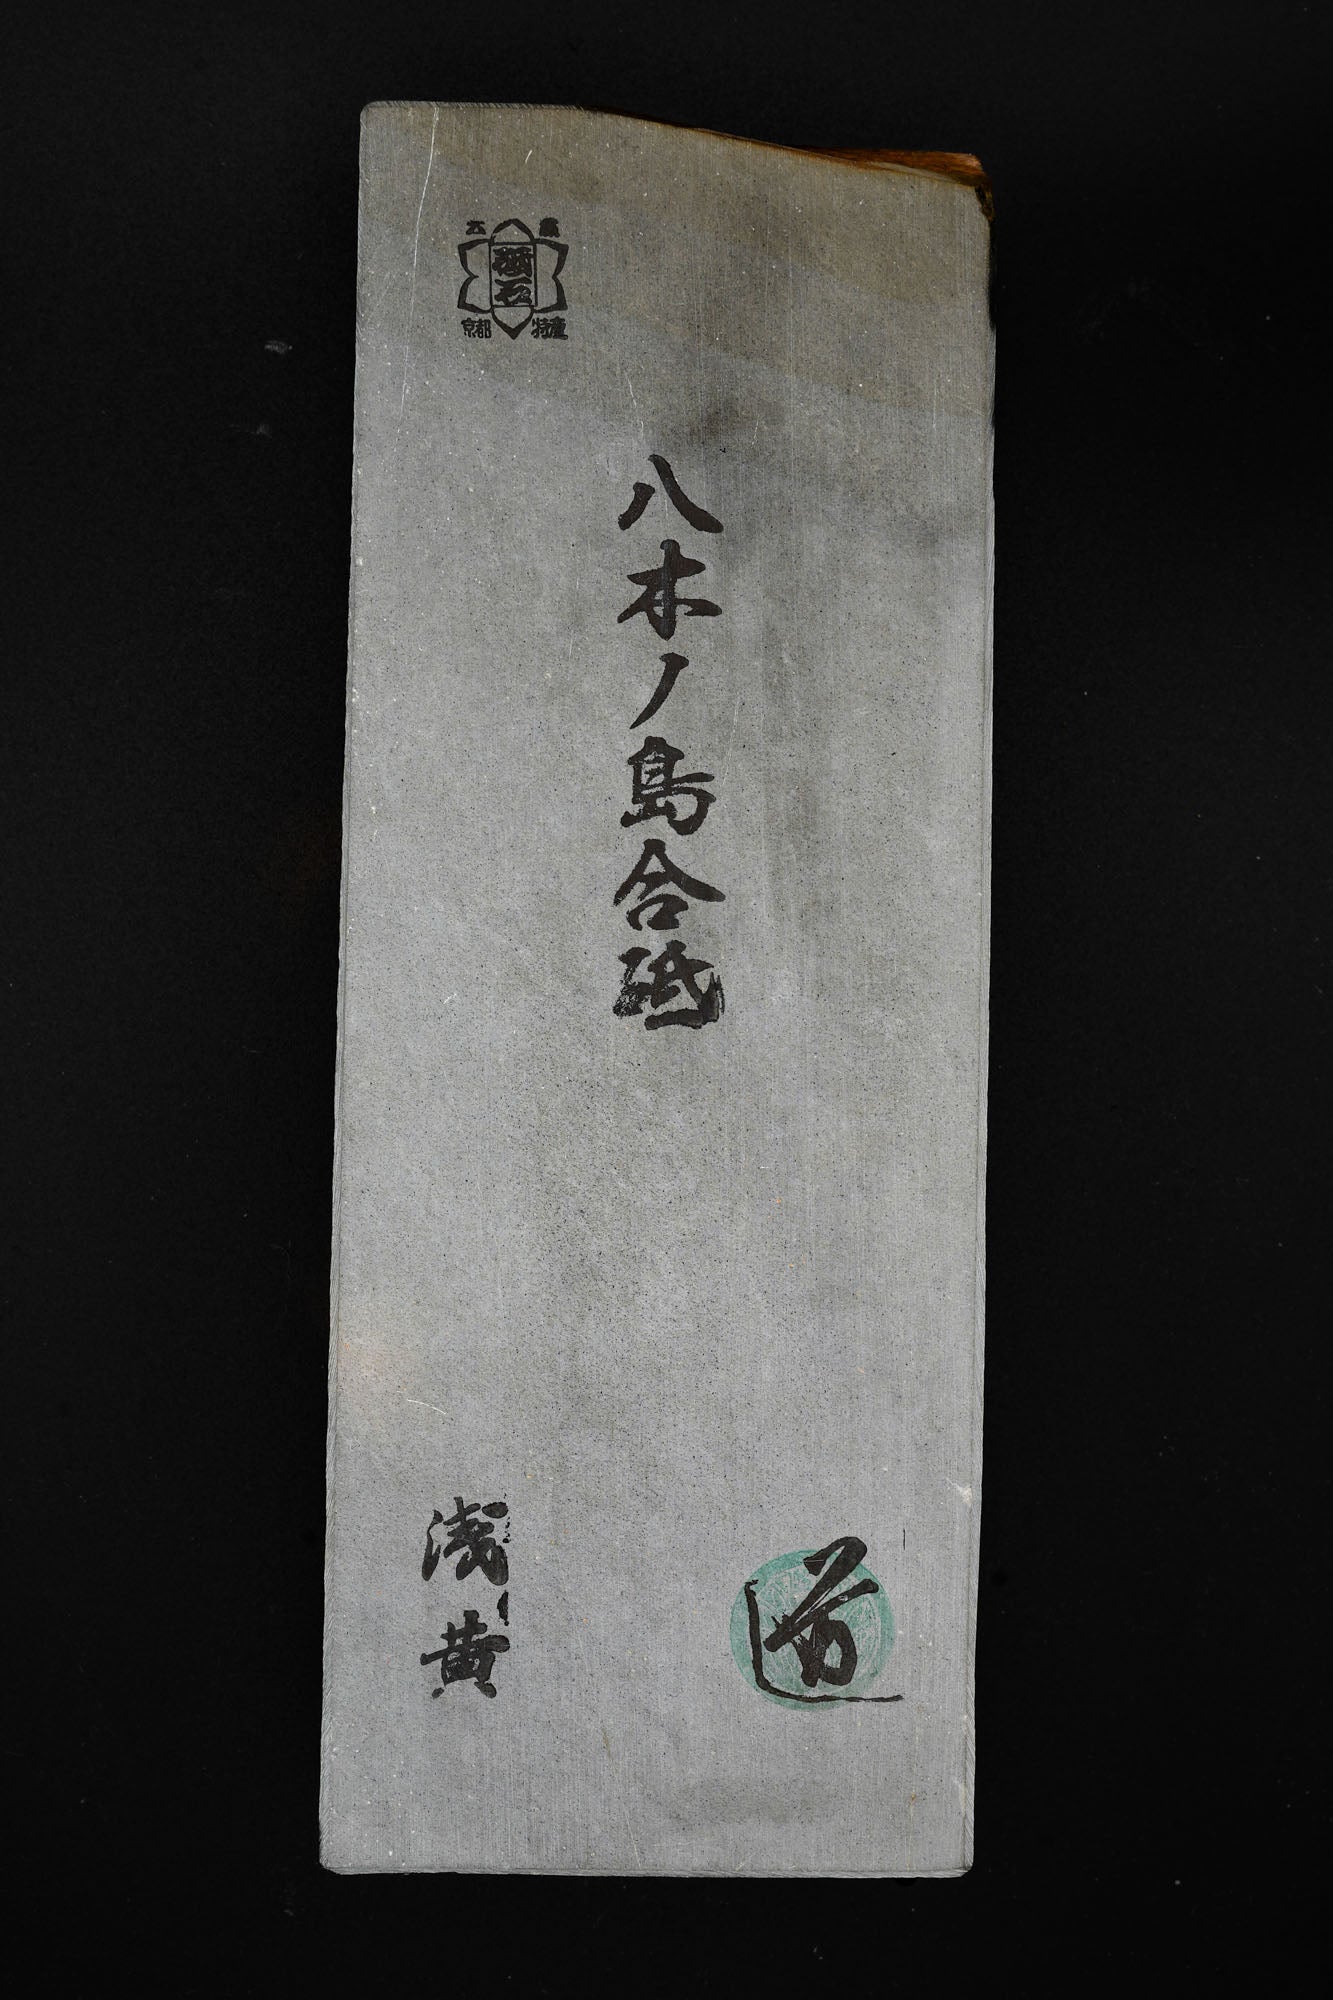 砥石
京都 特産
八木ノ島合砥
浅黄